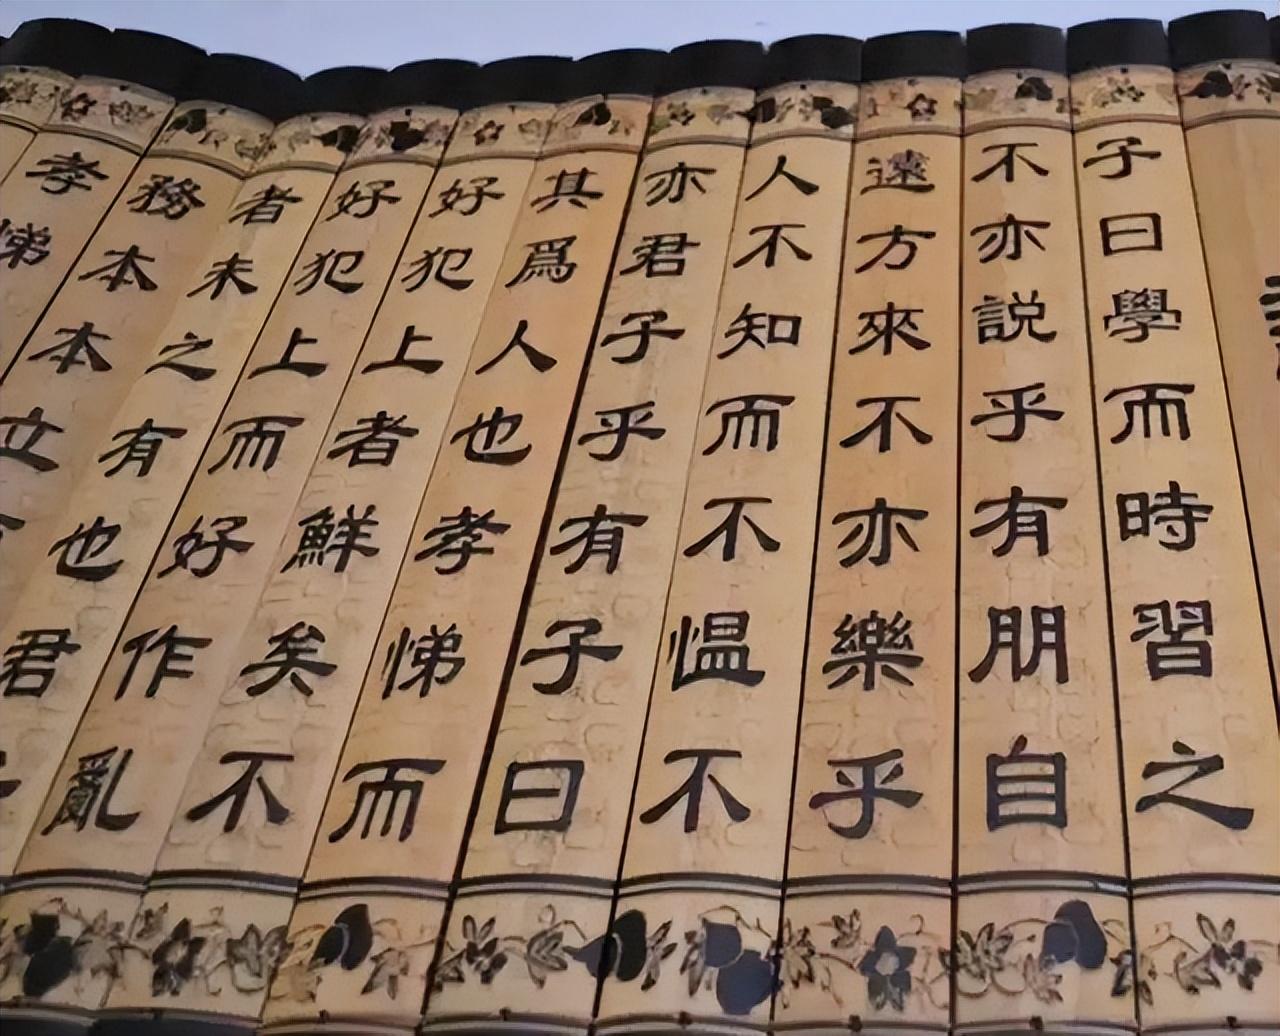 子曰學而時習之
不亦説乎有朋自
遠方來不亦樂乎
人不知而不愠不
亦君子乎有子曰
其爲人也孝悌而
好犯上者鮮矣不
好犯上而好作亂
者未之有也君
務本本立
孝悌